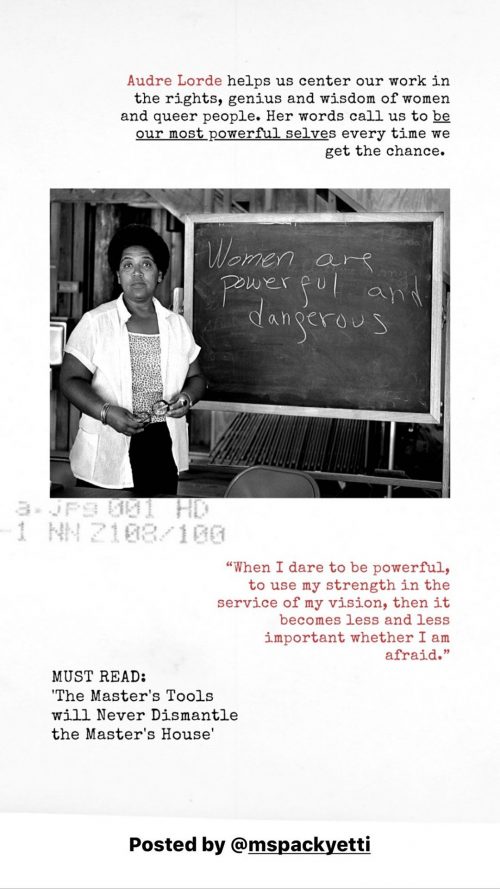 Audre Lorde helps us center our work in
the rights, genius and wisdom of women
and queer people. Her words call us to be
our most powerful selves every time we
get the chance.
Women are
powerful and
dangerous
a.jpg 001 HD
-1 NN Z108/100
“When I dare to be powerful,
to use my strength in the
service of my vision, then it
becomes less and less
important whether I am
afraid.”
MUST READ:
'The Master's Tools
will Never Dismantle
the Master's House'
Posted by @mspackyetti